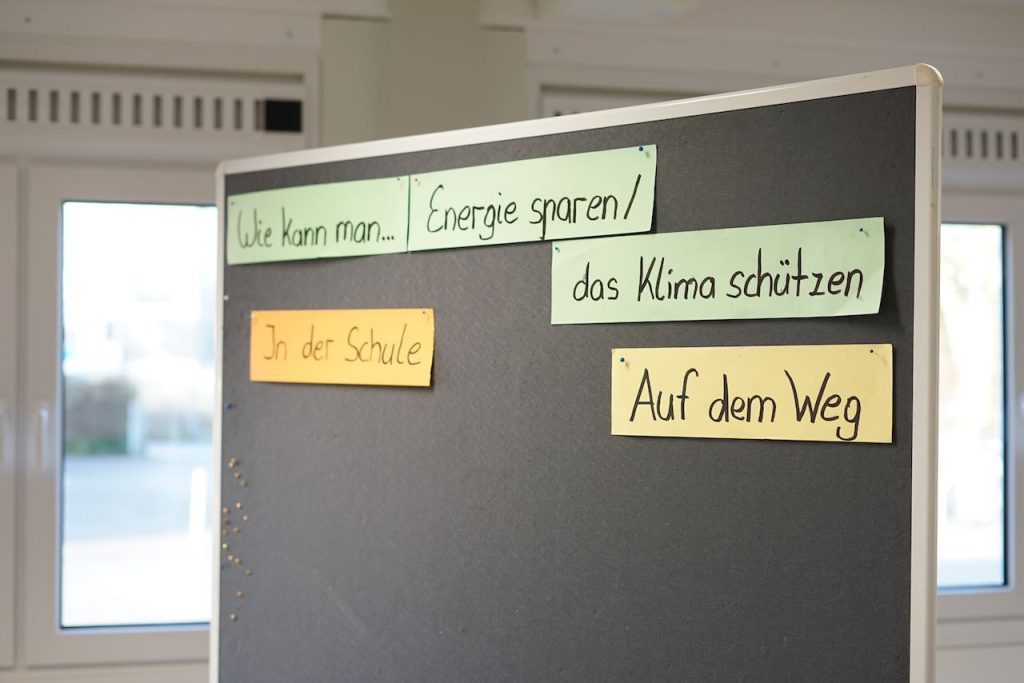 Wie kann man... Energie sparen/
das Klima schützen
In der Schule
Auf dem Weg